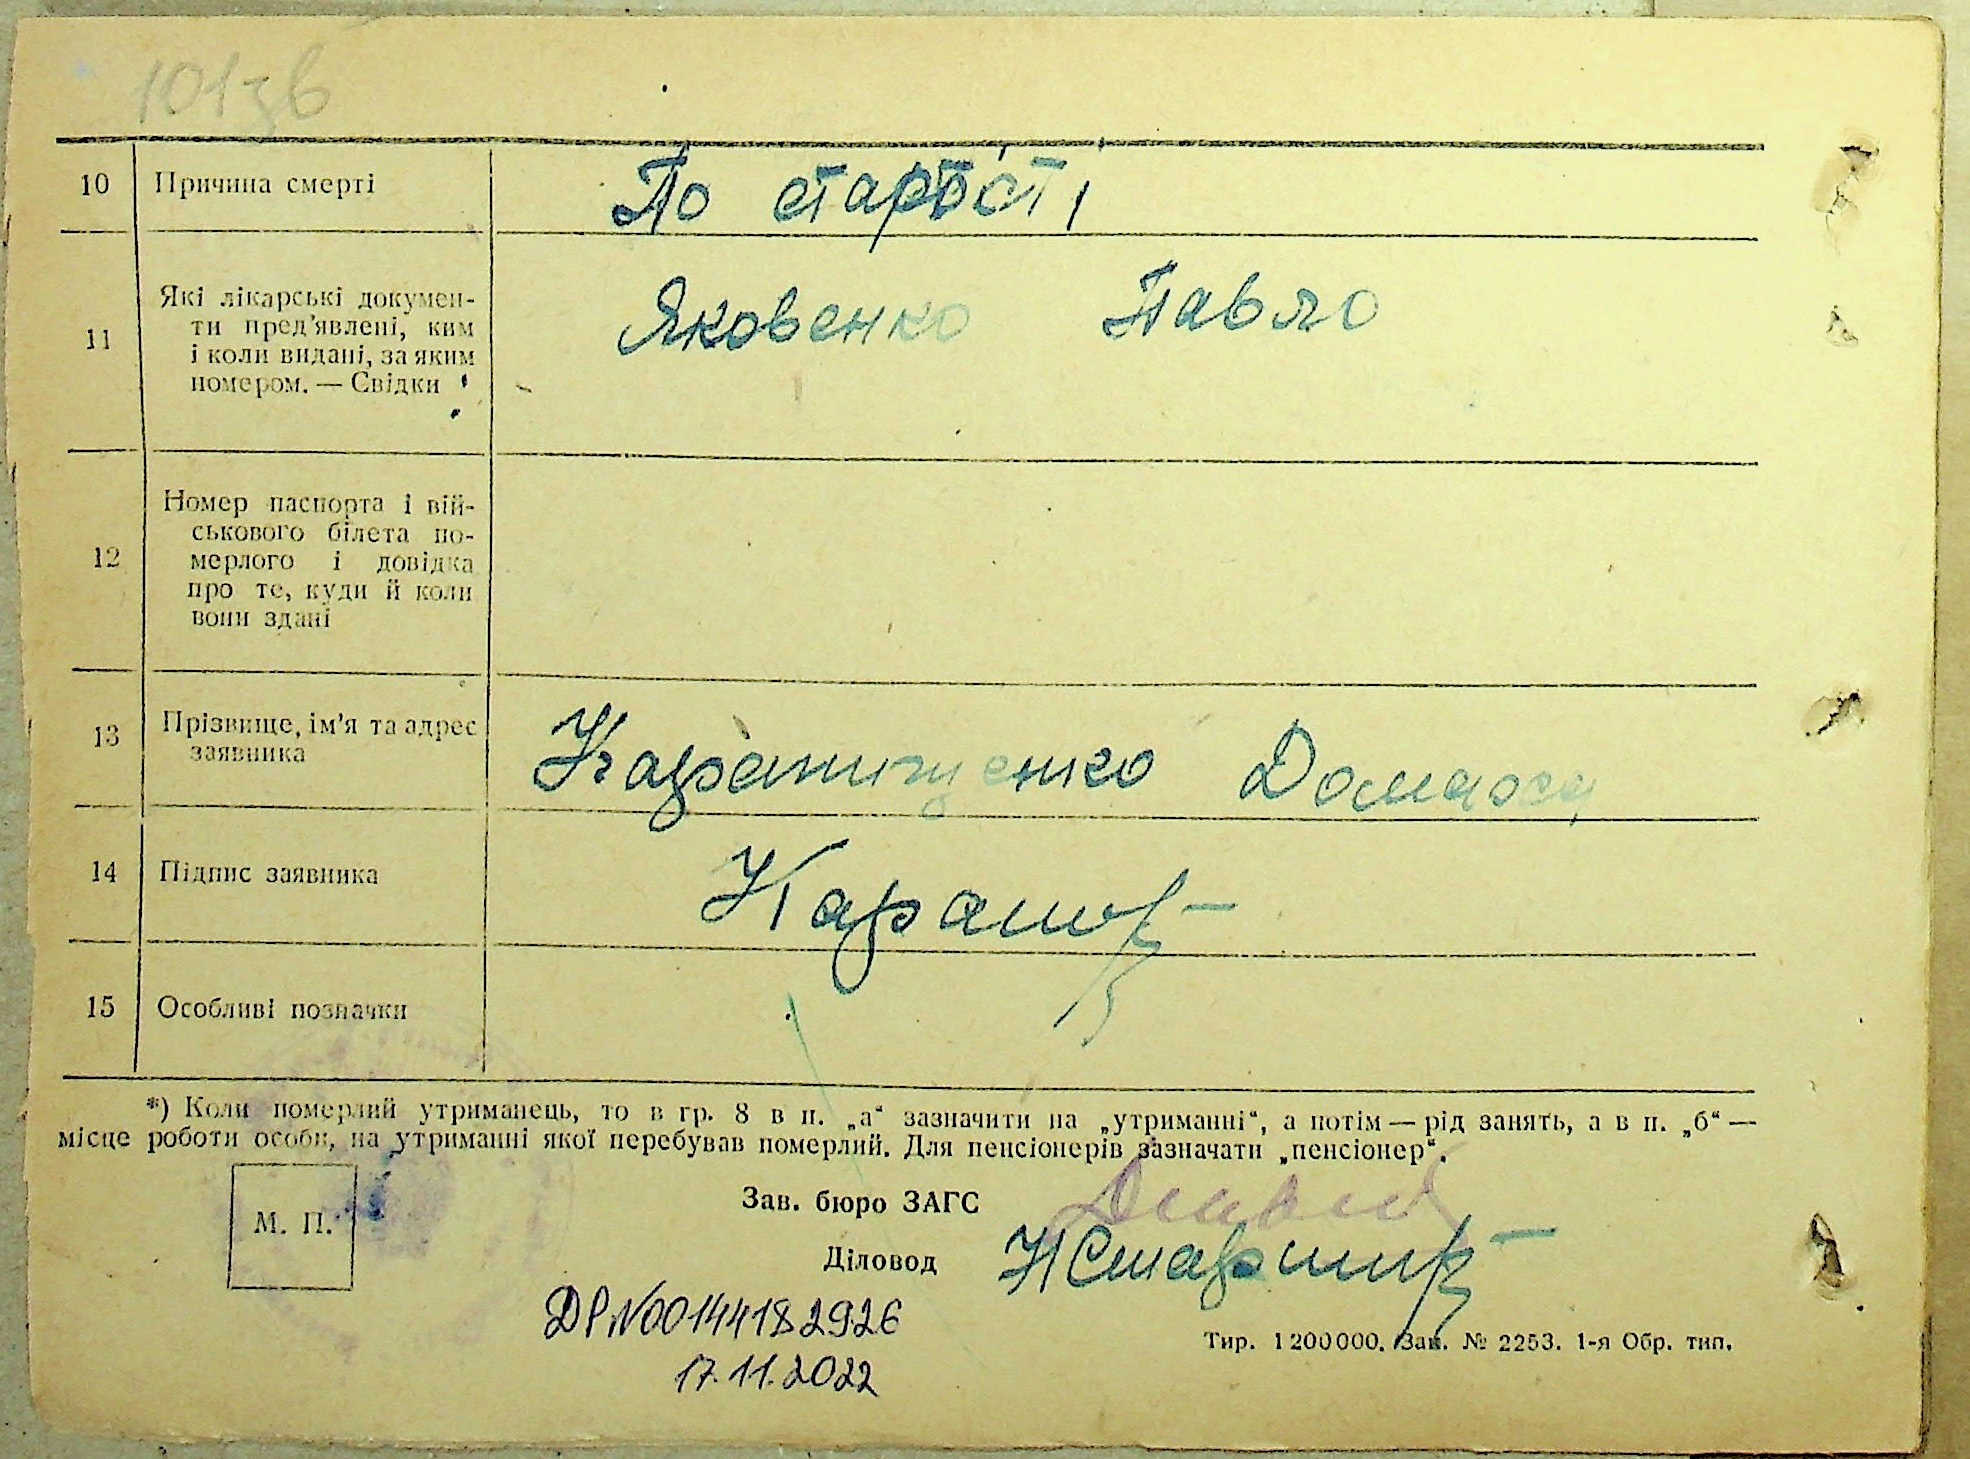 101зв
10 Причина смерті По старості
11 Які лікарські докумен-
ти пред'явлені, ким
і коли видані, за яким
номером. — Свідки
Яковенко Павло
12 Номер паспорта і вій-
ськового білета по-
мерлого і довідка
про те, куди й коли
вони здані
13 Прізвище, ім'я та адрес
заявника
Домаха
14 Підпис заявника
15 Особливі позначки
*) Коли померлий утриманець, то в гр. 8 в п. „а“ зазначити на „утриманні“, а потім — рід занять, а в п. „б“ —
місце роботи особи, на утриманні якої перебував померлий. Для пенсіонерів зазначати „пенсіонер“.
М. П.
Зав. бюро ЗАГС
Діловод
ДР№00144182926
17.11.2022
Тир. 1200000. Зак. № 2253. 1-я Обр. тип.